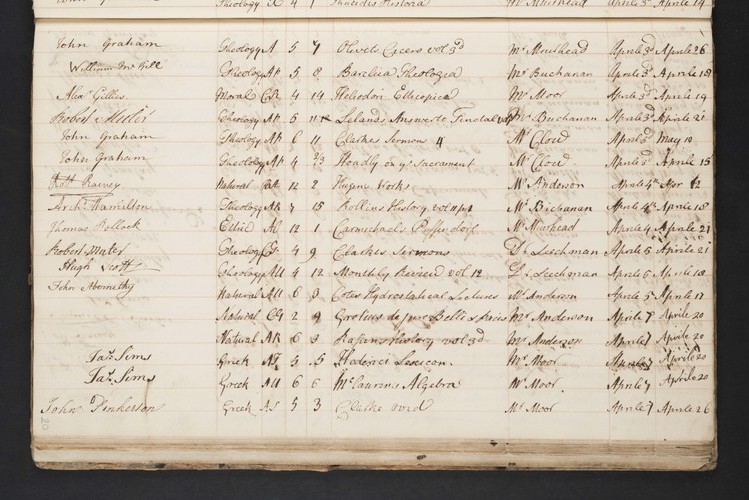 Theology A 4 1 Historia Mr Muirhead Aprile 3d Aprile 19
John Graham Theology A 5 7 Olivets Cicero vol 3d Mr Muirhead Aprile 3d Aprile 26
William McGill Theology AK 5 8 Barclai Theologia Mr Buchanan Aprile 3d Aprile 18
Alexr Gillies Moral 4 14 Heliodori Ethiopica Mr Moor Aprile 3d Aprile 19
Robert Theology AK 5 11 Lelands Answer to Tindal Mr Buchanan Aprile 3d Aprile 21
John Graham Theology AK 6 11 Clarkes Sermon 4 Mr Clow Aprile 5 May 10
John Graham Theology AK 4 23 Hoadly on ye Sacrament Mr Clow Aprile 5d Aprile 15
Robt Rainey Natural 12 2 Works Mr Anderson Aprile 4th Apr 12
Archd Hamilton Theology AK 7 15 Rollins History vol 11 Mr Buchanan Aprile 4th Aprile 18
Thomas Pollock Ethic 12 1 Carmichaels Puffendorf Mr Muirhead Aprile 4 Aprile 21
Robert Mater Theology 4 9 Clarkes Sermons Dr Leechman Aprile 5 Aprile 21
Hugh Scott Theology AU 4 12 Monthly Review vol 12 Dr Leechman Aprile 6 Aprile 18
John Abernethy Natural AU 6 3 Cotes Hydrostatical Lectures Mr Anderson Aprile 5 Aprile 17
Natural 2 9 Grotius de jure Belli & pacis Mr Anderson Aprile 7 Aprile 20
Natural AK 6 3 Rapins History vol 3d Mr Anderson Aprile 7 Aprile 20
Jas. Sims Greek 5 5 Hederici Lexicon Mr Moor Aprile 7 Aprile 20
Jas. Sims Greek AU 6 6 McLaurins Algebra Mr Moor Aprile 7 Aprile 20
John Pinkerton Greek AS 5 3 Clarke Mr Moor Aprile 7 Aprile 26
20